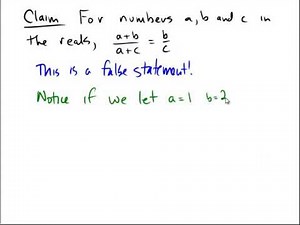 Claim For numbers a, b and c in
the reals, (a+b)/(a+c) = b/c
This is a false statement!
Notice if we let a=1 b=2,